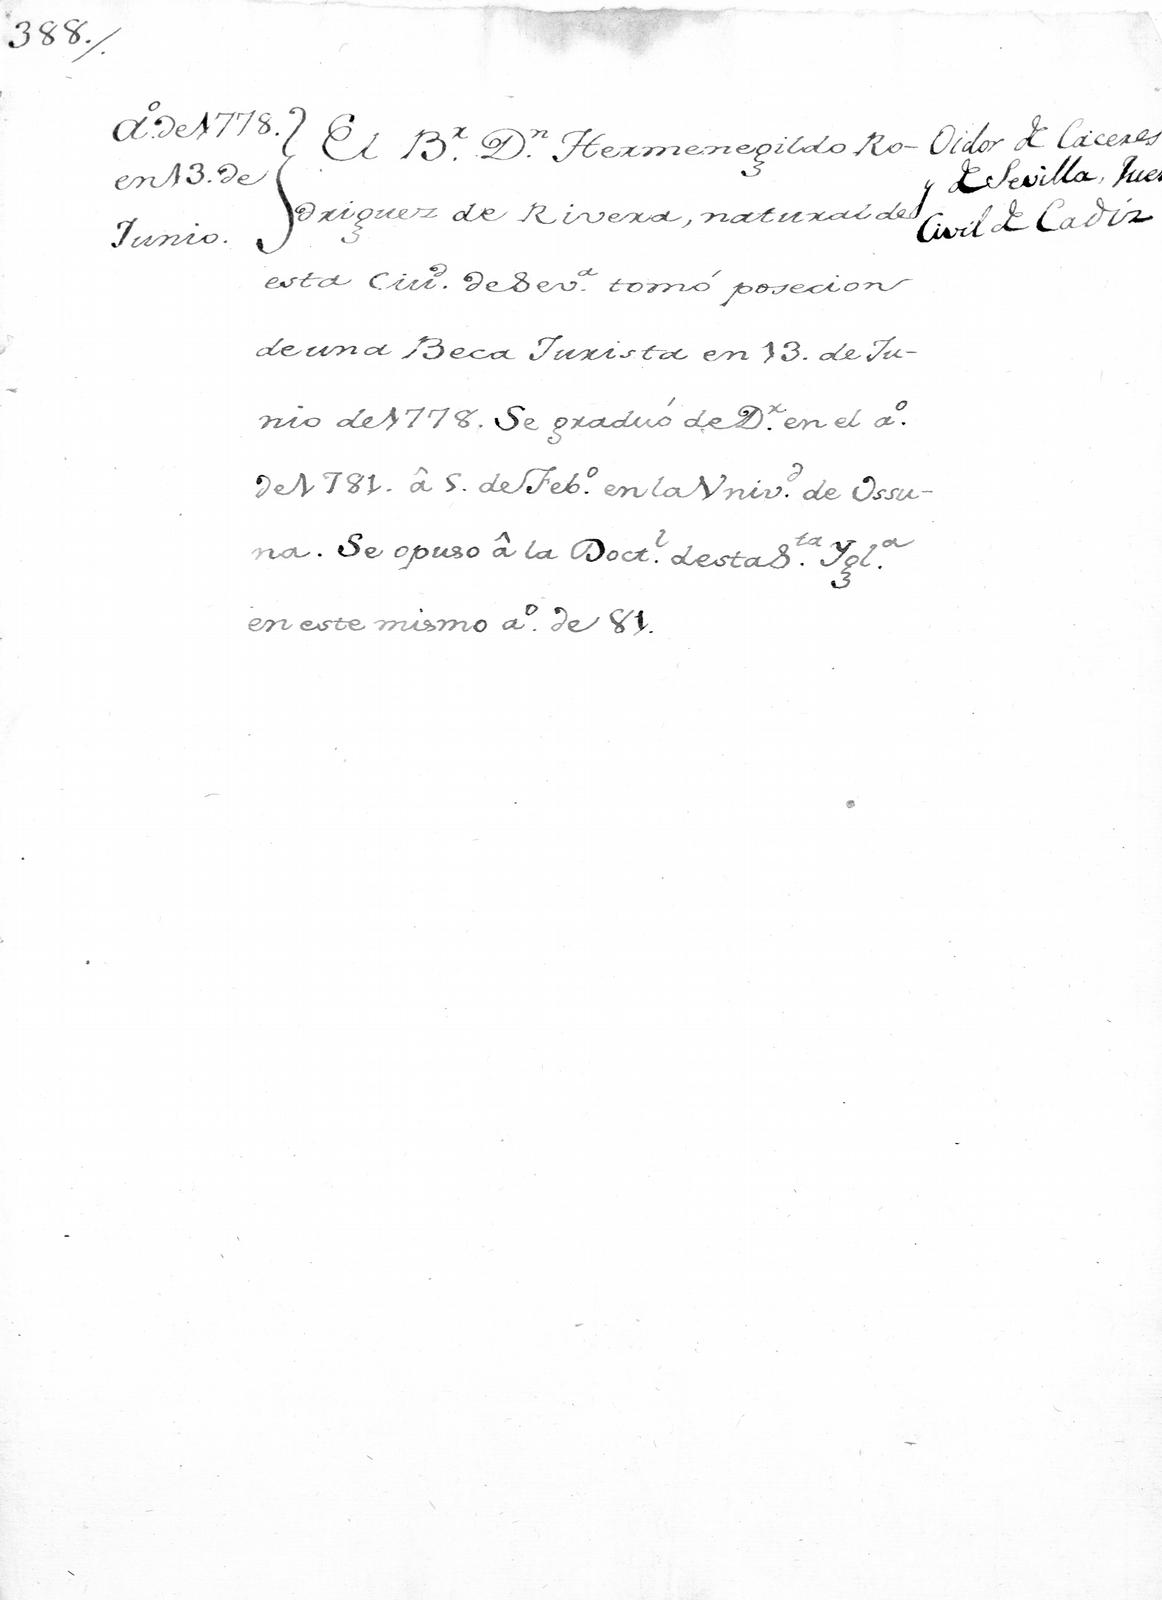 388./.
a.º de 1778.
en 13. de
Junio.
El B.r D.n Hermenegildo Ro-
driguez de Rivera, natural de
esta Ciu.d de Sev.a tomó posecion
de una Beca Jurista en 13. de Ju-
nio de 1778. Se graduó de D.r en el a.º
de 1781. â 5. de Feb.º en la Vniv.d de Ossu-
na. Se opuso â la Doct.l desta S.ta Ygl.a
en este mismo a.º de 81.
Oidor de Caceres
y de Sevilla, Juez
Civil de Cadiz